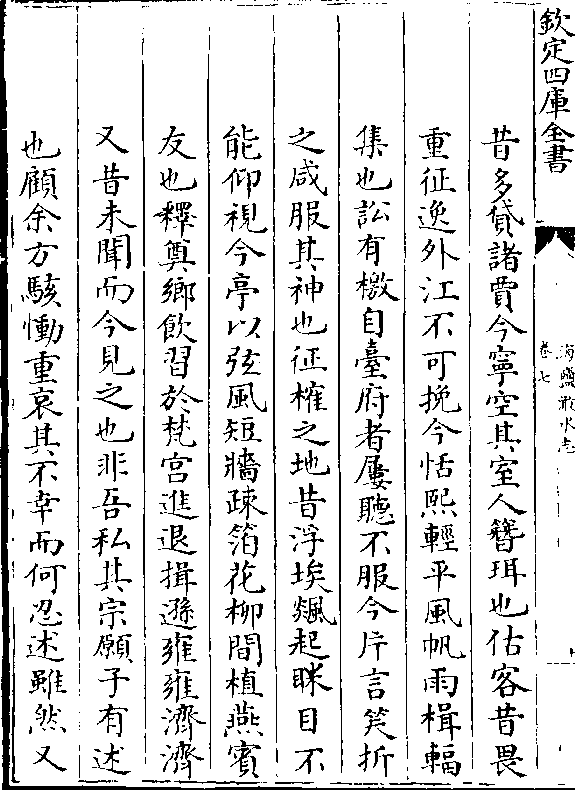 欽定四庫全書
海鹽澉水志
卷七
昔多貸諸賈今寧空其室人簪珥也估客昔畏
重征逸外江不可挽今恬熙輕平風帆雨楫輻
集也訟有檄自臺府者屢聽不服今片言笑折
之咸服其神也征榷之地昔浮埃飊起眯目不
能仰視今亭以弦風短牆疎箔花柳間植燕賓
友也釋奠鄉飲習於梵宮進退揖遜雍雍濟濟
又昔未聞而今見之也非吾私其宗願子有述
也顧余方駭慟重哀其不幸而何忍述雖然又